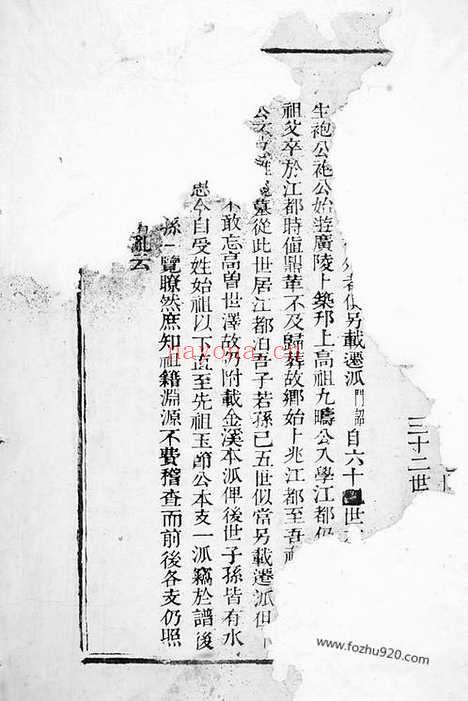 三十二世
者俱另載遷派 門詔 自六十 世
生袍公袍公始遊廣陵卜築邗上高祖九疇公入學江都仍
祖父卒於江都時值鼎革不及歸葬故鄉始卜兆江都至吾祖
公 墓從此世居江都迨吾子若孫已五世似當另載遷派但
不敢忘高曾世澤故仍附載金溪本派俾後世子孫皆有水
思今自受姓始祖以下直至先祖玉節公本支一派竊於譜後
孫一覽瞭然庶知祖籍淵源不費稽查而前後各支仍照
亂云
nayona.cn
www.fozhu920.com